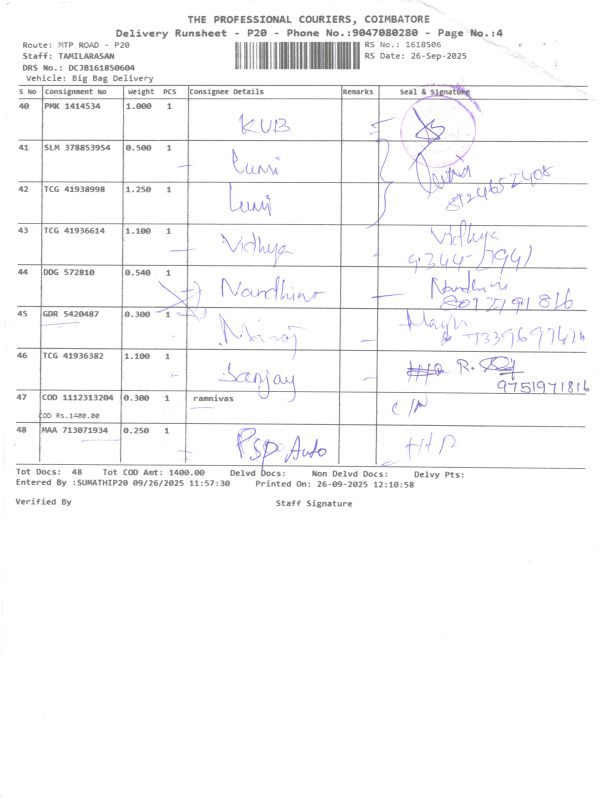 THE PROFESSIONAL COURIERS, COIMBATORE
Delivery Runsheet - P20 - Phone No.:9047080280 - Page No.:4
Route: MTP ROAD - P20 RS No.: 1618506
Staff: TAMILARASAN RS Date: 26-Sep-2025
DRS No.: DCJB161850604
Vehicle: Big Bag Delivery
S No Consignment No Weight PCS Consignee Details Remarks Seal & Signature
40 PMK 1414534 1.000 1
KUB
41 SLM 378853954 0.500 1
42 TCG 41938998 1.250 1
8124652408
43 TCG 41936614 1.100 1 Vidhya
Vidhya
44 DDG 572810 0.540 1
45 GDR 5420487 0.300 1
Manoj
46 TCG 41936382 1.100 1
Sanjay R.
9751971816
47 COD 1112313204 0.300 1 ramnivas
COD Rs.1400.00
48 MAA 713071934 0.250 1
PSP Auto
Tot Docs: 48 Tot COD Amt: 1400.00 Delvd Docs: Non Delvd Docs: Delvy Pts:
Entered By :SUMATHIP20 09/26/2025 11:57:30 Printed On: 26-09-2025 12:10:58
Verified By Staff Signature